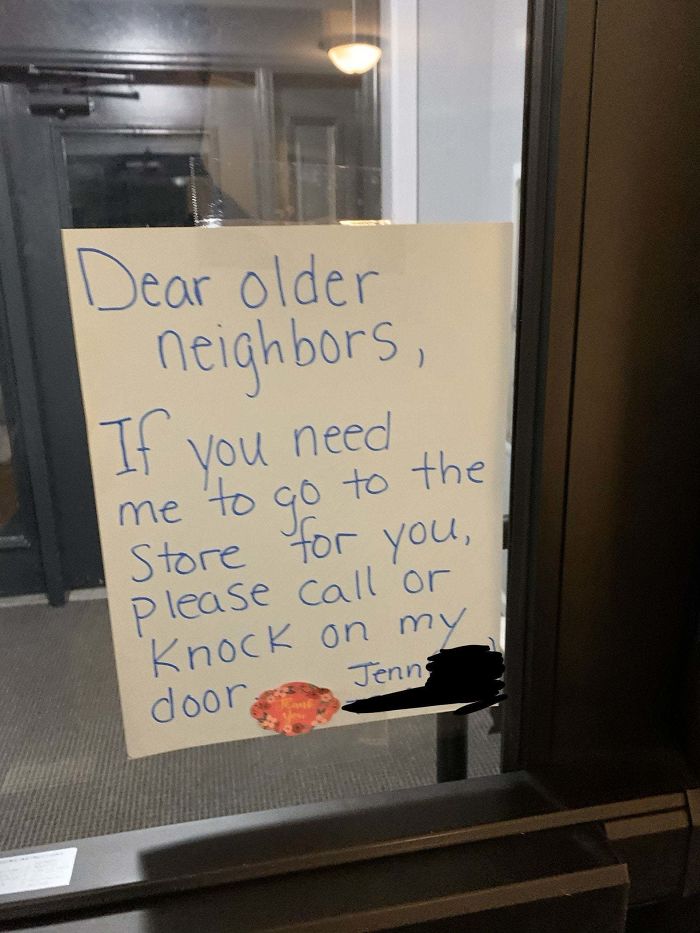 Dear older
neighbors,
If you need
me to go to the
Store for you,
please call or
Knock on my
door.
Jenn
Thank
You